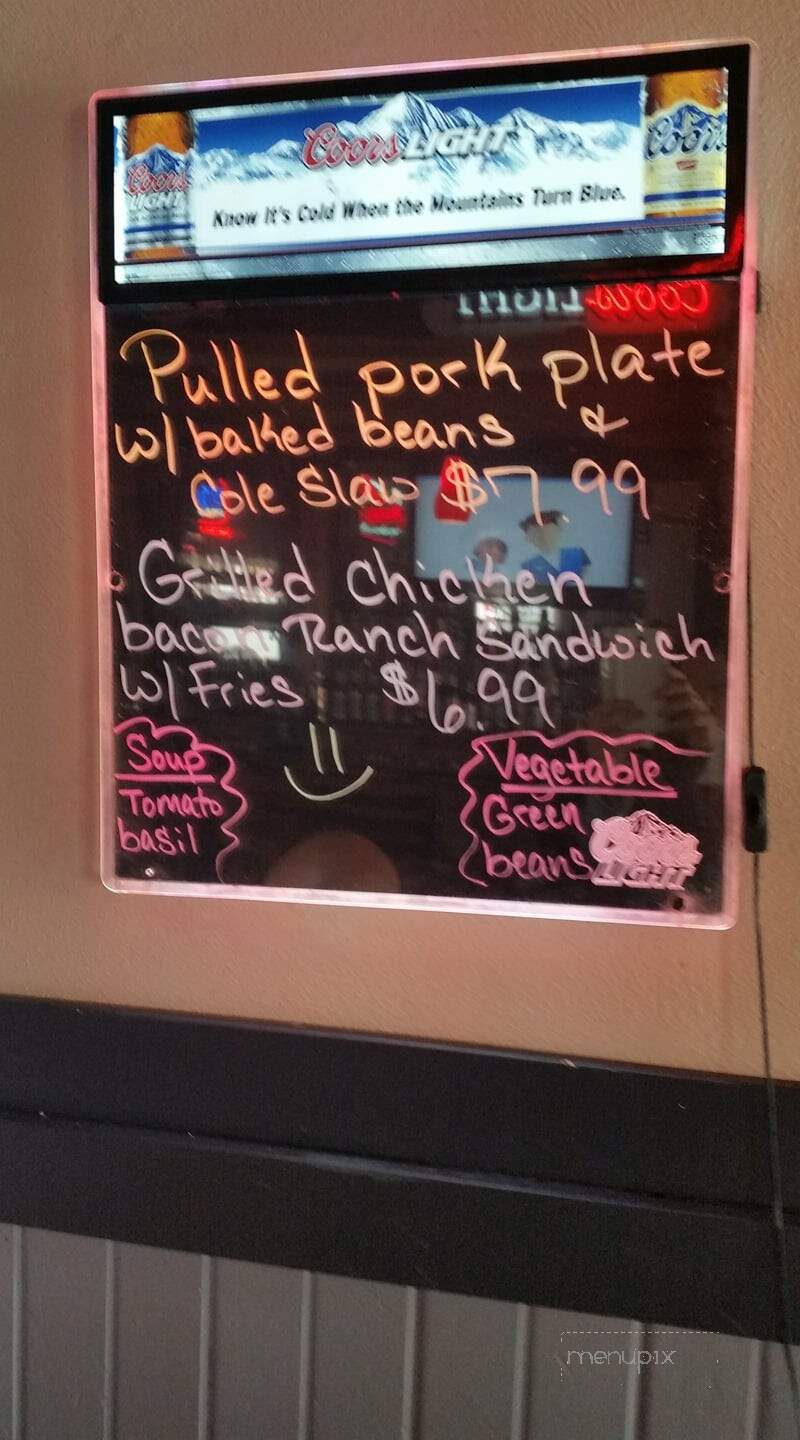 Coors LIGHT
Coors LIGHT
Coors
Know It's Cold When the Mountains Turn Blue.
COORS LIGHT
Pulled pork plate
w/ baked beans &
Cole Slaw $7.99
Grilled Chicken
bacon Ranch Sandwich
w/ Fries $6.99
Soup
Tomato
basil
Vegetable
Green
beans
Coors
LIGHT
menupix